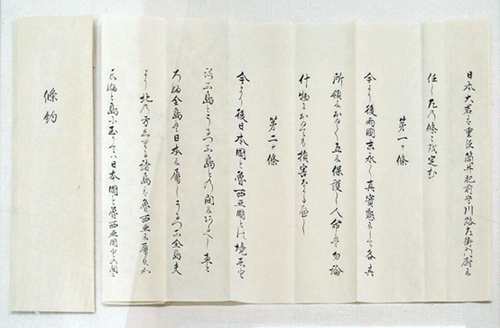 日本大君重臣筒井肥前守川路左衛門尉に
任し左の條々を定む
第一ヶ條
今より後両國末永く真實懇にして各其
所領におゐて互に保護し人命は勿論
什物におゐても損害なかるへし
第二ヶ條
今より後日本國と魯西亜國との境ヱト
ロフ島とウルップ島との間にあるへしヱト
ロフ全島は日本に属しウルップ全島夫
より北の方クリル諸島は魯西亜に属す
島に至りては日本國と魯西亜國
條約